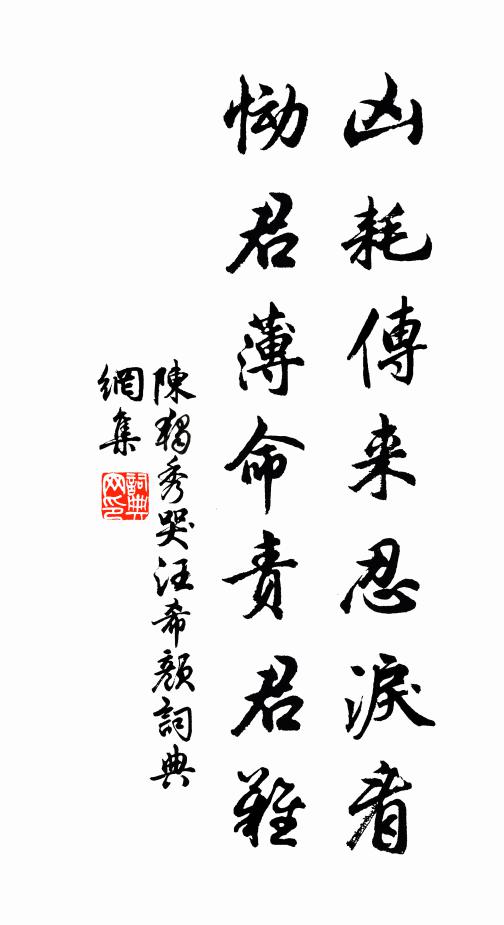 凶耗傳来忍淚看
恸君薄命责君難
陳獨秀哭汪希顏詞典
網集
詞典
网印